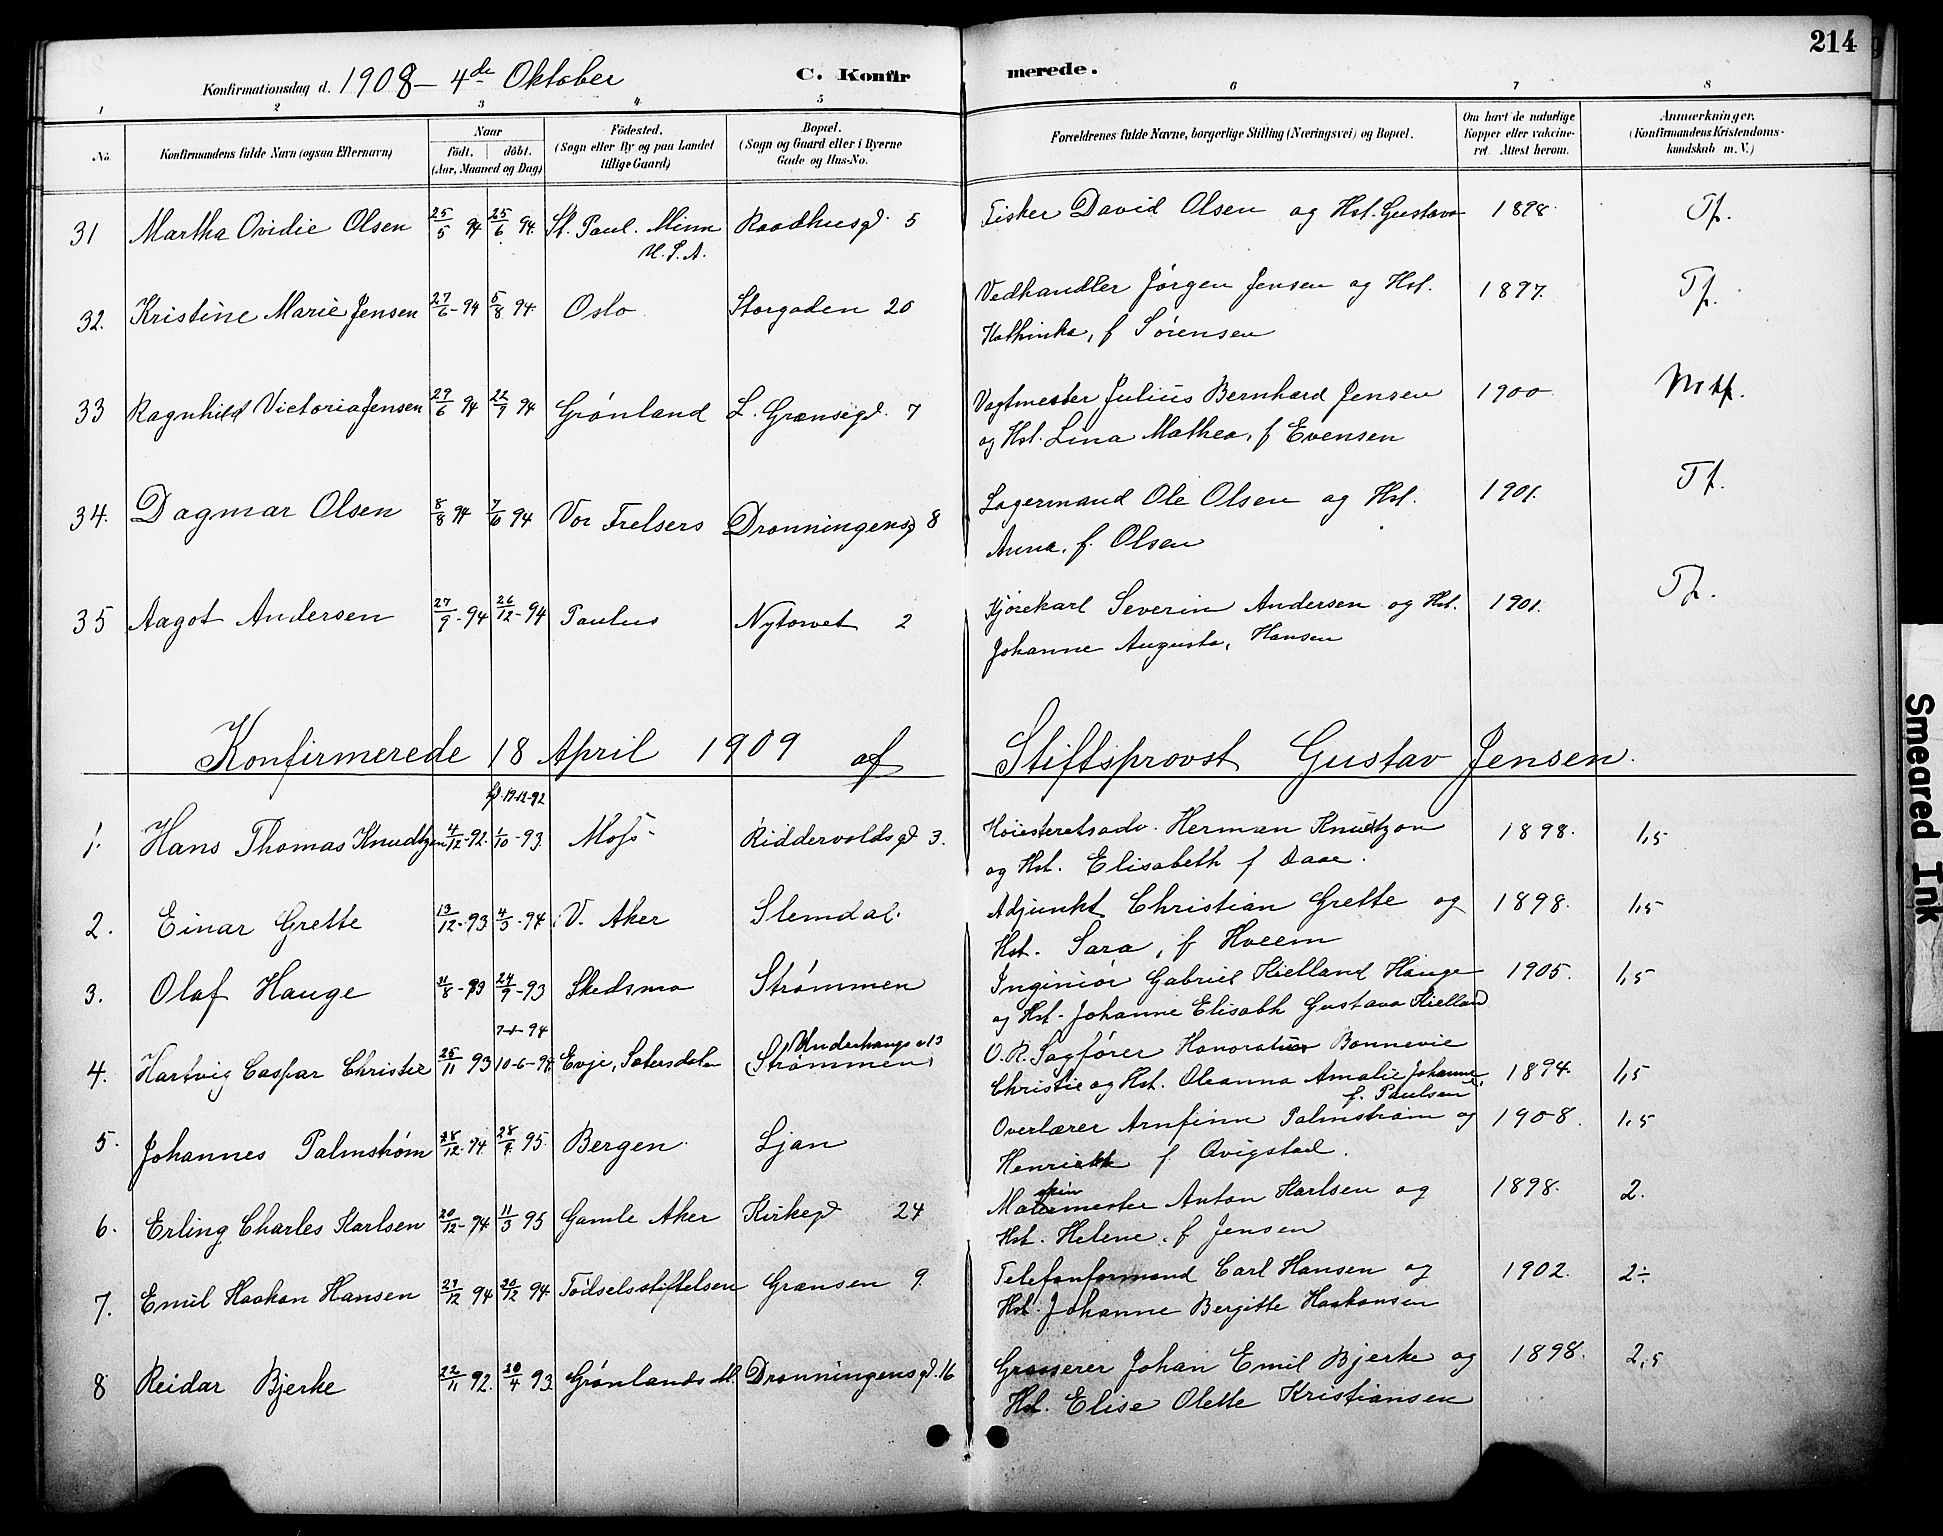 214
Konfirmationsdag d. 1908 – 4de Oktober C. Konfir merede.
1 2 3 4 5 6 7 8
No. Konfirmandens fulde Navn (ogsaa Efternavn) Naar født, døbt. (Aar, Maaned og Dag) Födested. (Sogn eller By og paa Landet tillige Gaard) Bopæl. (Sogn og Gaard eller i Byerne Gade og Hus-No. Forældrenes fulde Navne, borgerlige Stilling (Næringsvei) og Bopæl. Om havt de naturlige Kopper eller vakcineret. Attest herom. Anmærkninger. (Konfirmandens Kristendomskundskab m. V.)
31 Martha Ovidie Olsen 25/5 94 25/6 94. St. Paul. Minn U.S.A. Raadhusgd. 5 Fisker David Olsen og Hst. Gustava 1898. Tf.
32. Kristine Marie Jensen 27/6-94 5/8 94. Oslo Storgaden 20 Vedhandler Jørgen Jensen og Hst. 1897. Tf.
Kathinka, f Sørensen
33 Ragnhild Victoria Jensen 29/6 94 22/9 94 Grønland L. Grænsegd. 7 Vagtmester Julius Bernhard Jensen 1900 Mtf.
og Hst. Lina Mathea, f Evensen
34. Dagmar Olsen 8/8 94 7/6 94 Vor Frelsers Dronningensg 8 Lagermand Ole Olsen og Hst. 1901. Tf.
Anna, f. Olsen
35 Aagot Andersen 27/9-94 26/12-94 Paulus Nytorvet 2 Kjørekarl Severin Andersen og Hst. 1901. Tf.
Johanne Augusta, Hansen
Konfirmerede 18 April 1909 af Stiftsprovst Gustav Jensen.
1. Hans Thomas Knudtzon 4/12-92. 1/10-93. Moss Riddervoldsgd 3. Høiesteretsadv. Herman Knudtzon 1898. 1,5
og Hst. Elisabeth f Daae.
2. Einar Grette 13/12-93 4/3-94 V. Aker Slemdal. Adjunkt Christian Grette og 1898. 1,5
Hst. Sara, f Hveem
3. Olaf Hauge 31/8-93 24/9-93 Skedsmo Strømmen Inginiør Gabriel Kielland Hauge 1905. 1,5
og Hst. Johanne Elisabh Gustava Kielland
4. Hartvig Caspar Christie 25/11 93 7-1-94 10-6-94 Evje, Sætersdalen (Strømmen) Underhaugsv 13 O.R. Sagfører Honoratus Bonnevie
Christie og Hst. Oleanna Amalie Johanne, f. Paulsen 1894. 1,5
5. Johannes Palmstrøm 28/12-94. 28/9 95. Bergen Ljan Overlærer Arnfinn Palmstrøm og 1908. 1,5
Henriette f Qvigstad.
6. Erling Charles Karlsen 20/12-94 11/3 95 Gamle Aker Kirkegd 24 Maskinmester Anton Karlsen og 1898. 2.
Hst. Helene, f Jensen
7. Emil Haakon Hansen 27/12 94 30/12 94. Fødselsstiftelsen Grænsen 9. Telefonformand Carl Hansen og 1902. 2÷
Hst. Johanne Bergitte Haakonsen
8 Reidar Bjerke 22/11 92. 20/4 93 Grønlands M. Dronningensgd. 16 Grosserer Johan Emil Bjerke og 1898. 2,5
Hst. Elise Olette Kristiansen
Smeared Ink